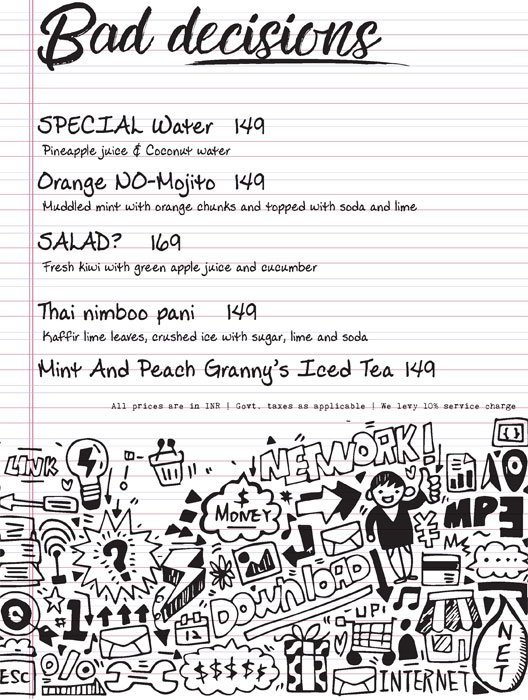 Bad decisions
SPECIAL Water 149
Pineapple juice & Coconut water
Orange NO-Mojito 149
Muddled mint with orange chunks and topped with soda and lime
SALAD? 169
Fresh kiwi with green apple juice and cucumber
Thai nimboo pani 149
Kaffir lime leaves, crushed ice with sugar, lime and soda
Mint And Peach Granny's Iced Tea 149
All prices are in INR | Govt. taxes as applicable | We levy 10% service charge
LINK
NETWORK!
{}
$
MONEY
MP3
?
¥
DOWNLOAD
#1
UP!
12
NET
ESC
%
$$$$$
INTERNET